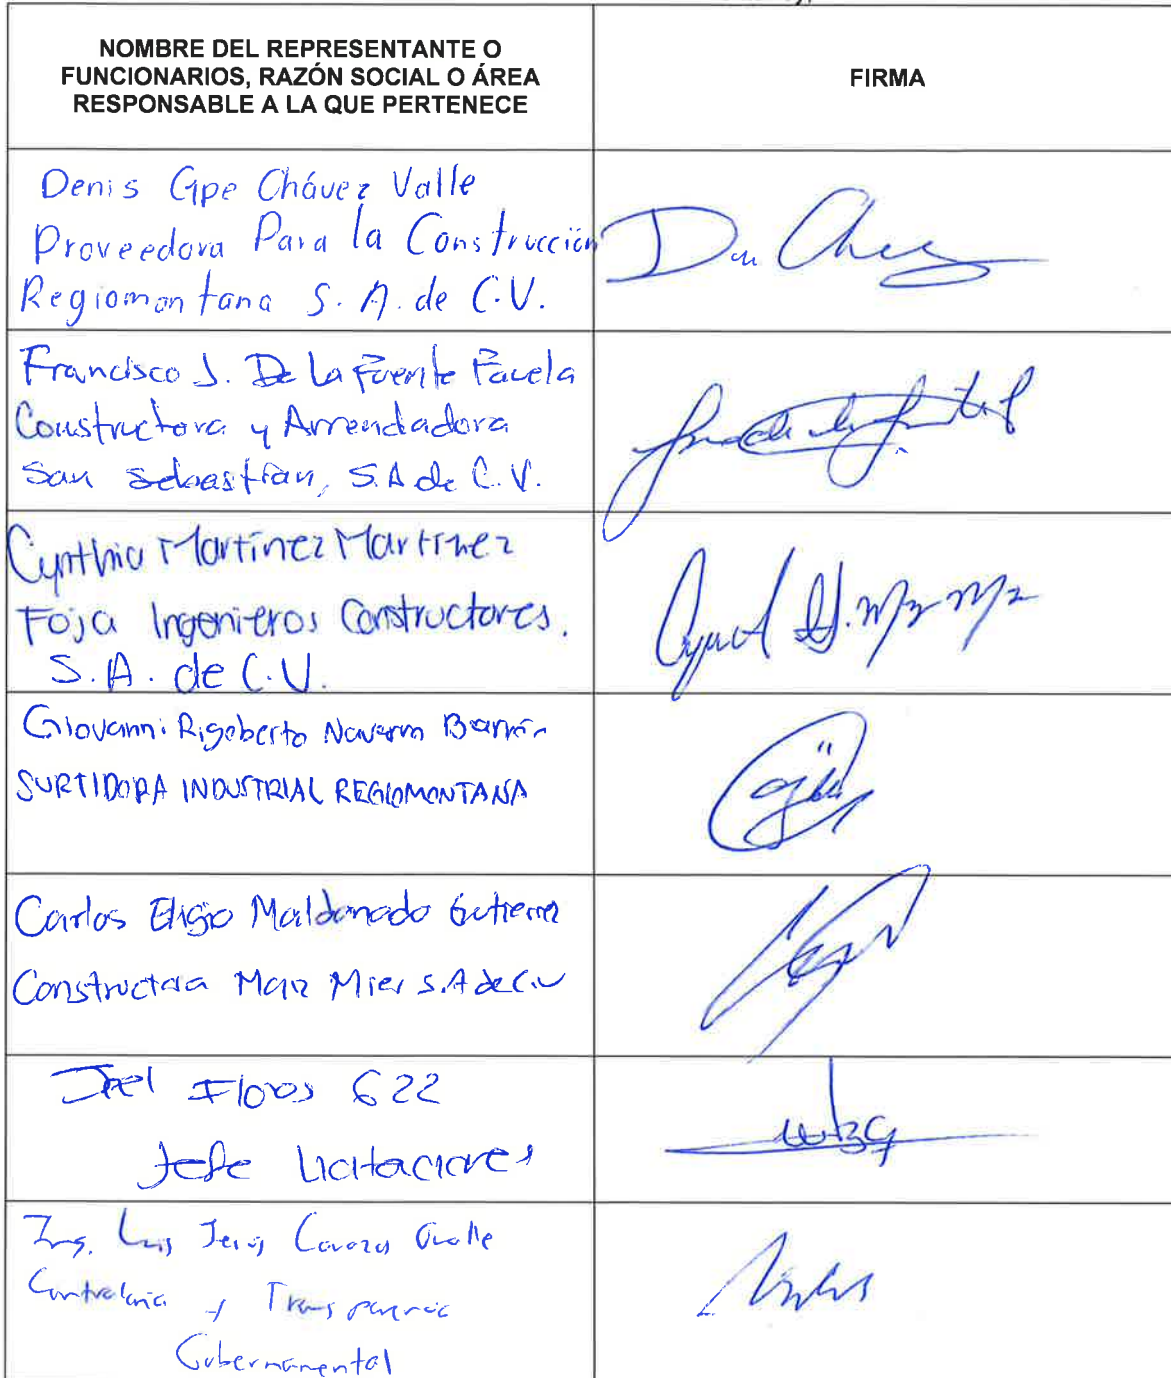 NOMBRE DEL REPRESENTANTE O
FUNCIONARIOS, RAZÓN SOCIAL O ÁREA
RESPONSABLE A LA QUE PERTENECE
FIRMA
Denis Gpe Chávez Valle
Proveedora Para la Construcción
Regiomontana S. A. de C.V.
Francisco J. De la Fuente Favela
Constructora y Arrendadora
San Sebastian, S.A de C.V.
Cynthia Martínez Martínez
Foja Ingenieros Constructores.
S.A. de C.V.
Giovanni Rigoberto Navarro Barrón
SURTIDORA INDUSTRIAL REGIOMONTANA
Carlos Eligio Maldonado Gutierrez
Constructora Maiz Mier S.A de C.V
Joel Flores 622
Jefe Licitaciones
Ing. Luis Jesus Cavazos Ovalle
Contraloria y Transparencia
Gubernamental